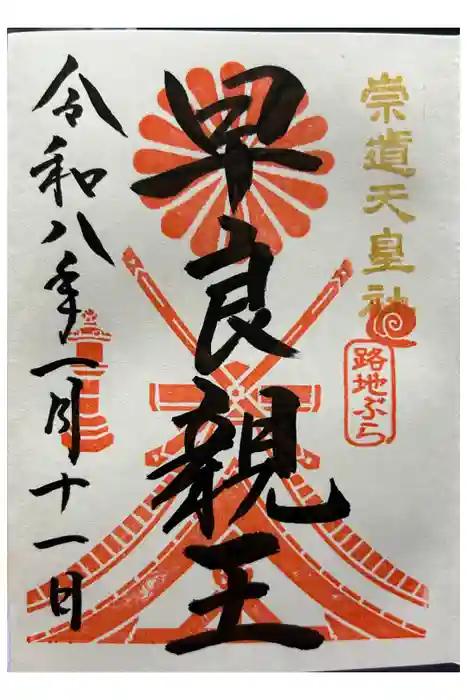 崇道天皇社
路地ぶら
早良親王
令和八年一月十一日